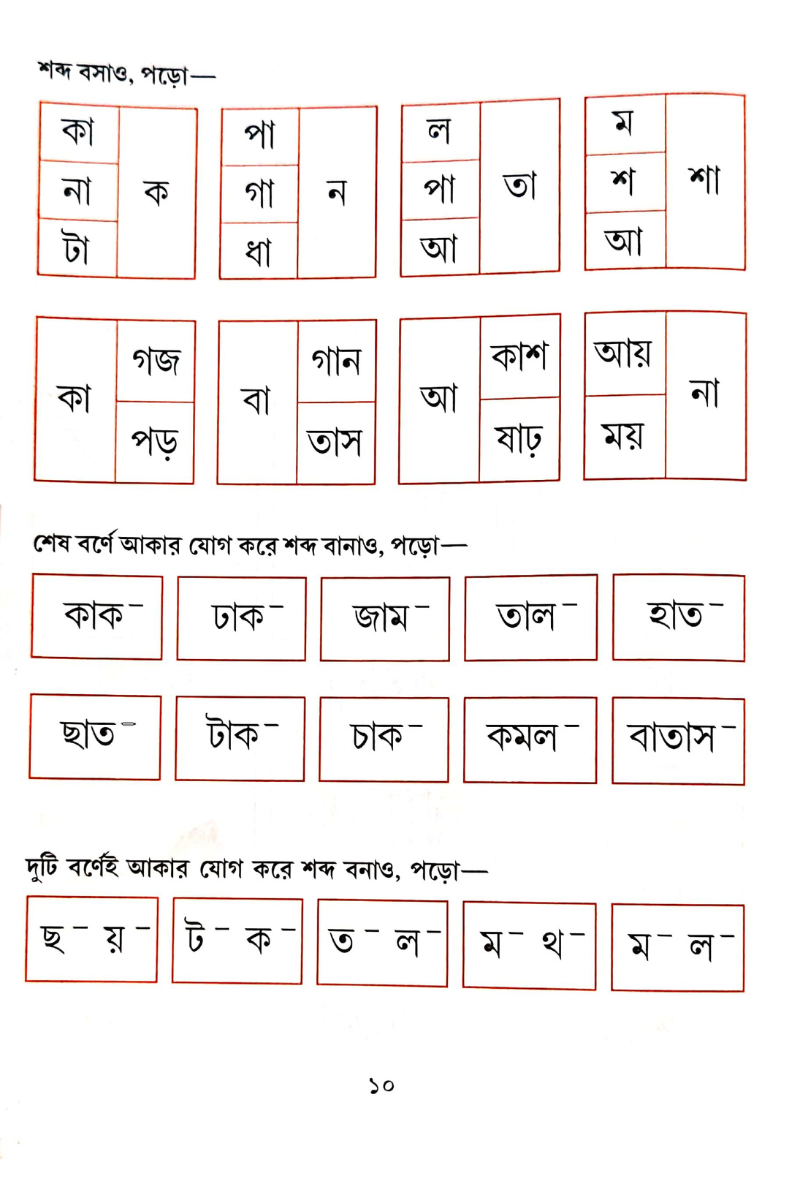 শব্দ বসাও, পড়ো—
কা পা ল ম
না ক গা ন পা তা শ শা
টা ধা আ আ
গজ গান কাশ আয়
কা বা আ না
পড় তাস ষাঢ় ময়
শেষ বর্ণে আকার যোগ করে শব্দ বানাও, পড়ো—
কাক– ঢাক– জাম– তাল– হাত–
ছাত– টাক– চাক– কমল– বাতাস–
দুটি বর্ণেই আকার যোগ করে শব্দ বনাও, পড়ো—
ছ– য়– ট– ক– ত– ল– ম– থ– ম– ল–
১০